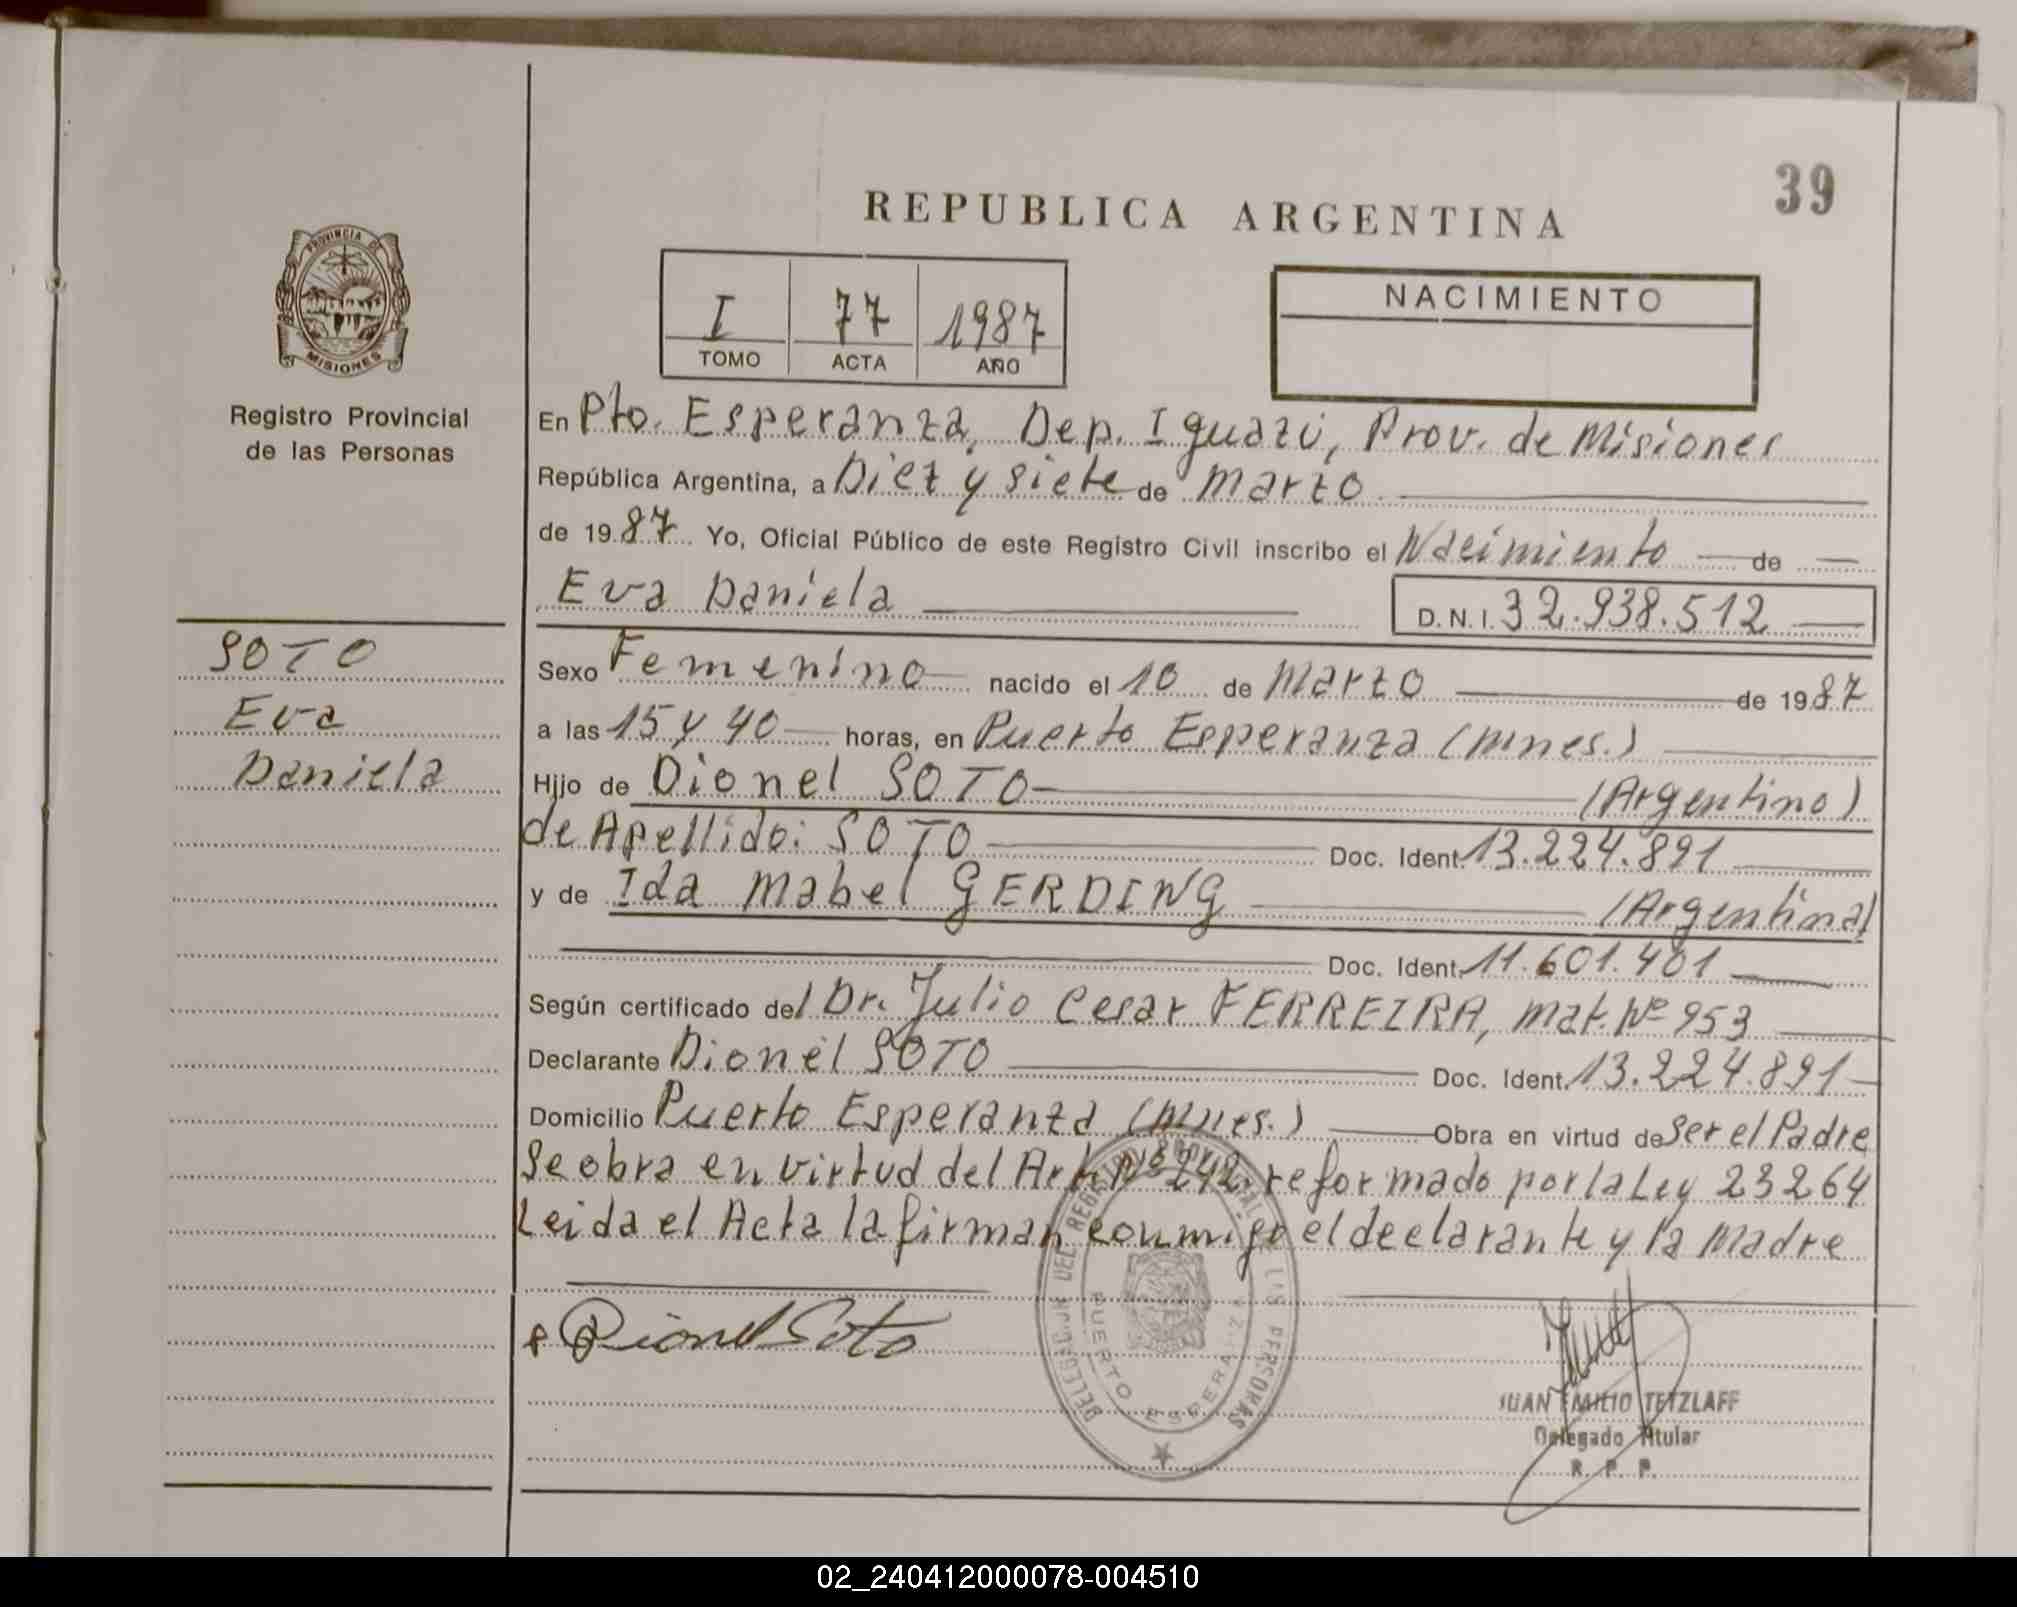 39
REPUBLICA ARGENTINA
PROVINCIA DE
MISIONES
Registro Provincial
de las Personas
I 77 1987
TOMO ACTA AÑO
NACIMIENTO
En Pto. Esperanza, Dep. Iguazú, Prov. de Misiones
República Argentina, a Diez y siete de Marzo
de 1987 Yo, Oficial Público de este Registro Civil inscribo el Nacimiento de
Eva Daniela
D.N.I. 32.938.512
SOTO
Eva
Daniela
Sexo Femenino nacido el 10 de Marzo de 1987
a las 15 y 40 horas, en Puerto Esperanza (Mnes.)
Hijo de Dionel SOTO (Argentino)
de Apellido: SOTO Doc. Ident. 13.224.891
y de Ida Mabel GERDING (Argentina)
Doc. Ident. 11.601.401
Según certificado del Dr. Julio Cesar FERREIRA, Mat. Nº 953
Declarante Dionel SOTO Doc. Ident. 13.224.891
Domicilio Puerto Esperanza (Mnes.) Obra en virtud de Ser el Padre
Se obra en virtud del Art. Nº 242. reformado por la Ley 23264
Leida el Acta la firman conmigo el declarante y la Madre
Dionel Soto
DELEGACION DEL REGISTRO PROVINCIAL DE LAS PERSONAS
PUERTO ESPERANZA
JUAN EMILIO TETZLAFF
Delegado Titular
R. P. P.
02_240412000078-004510